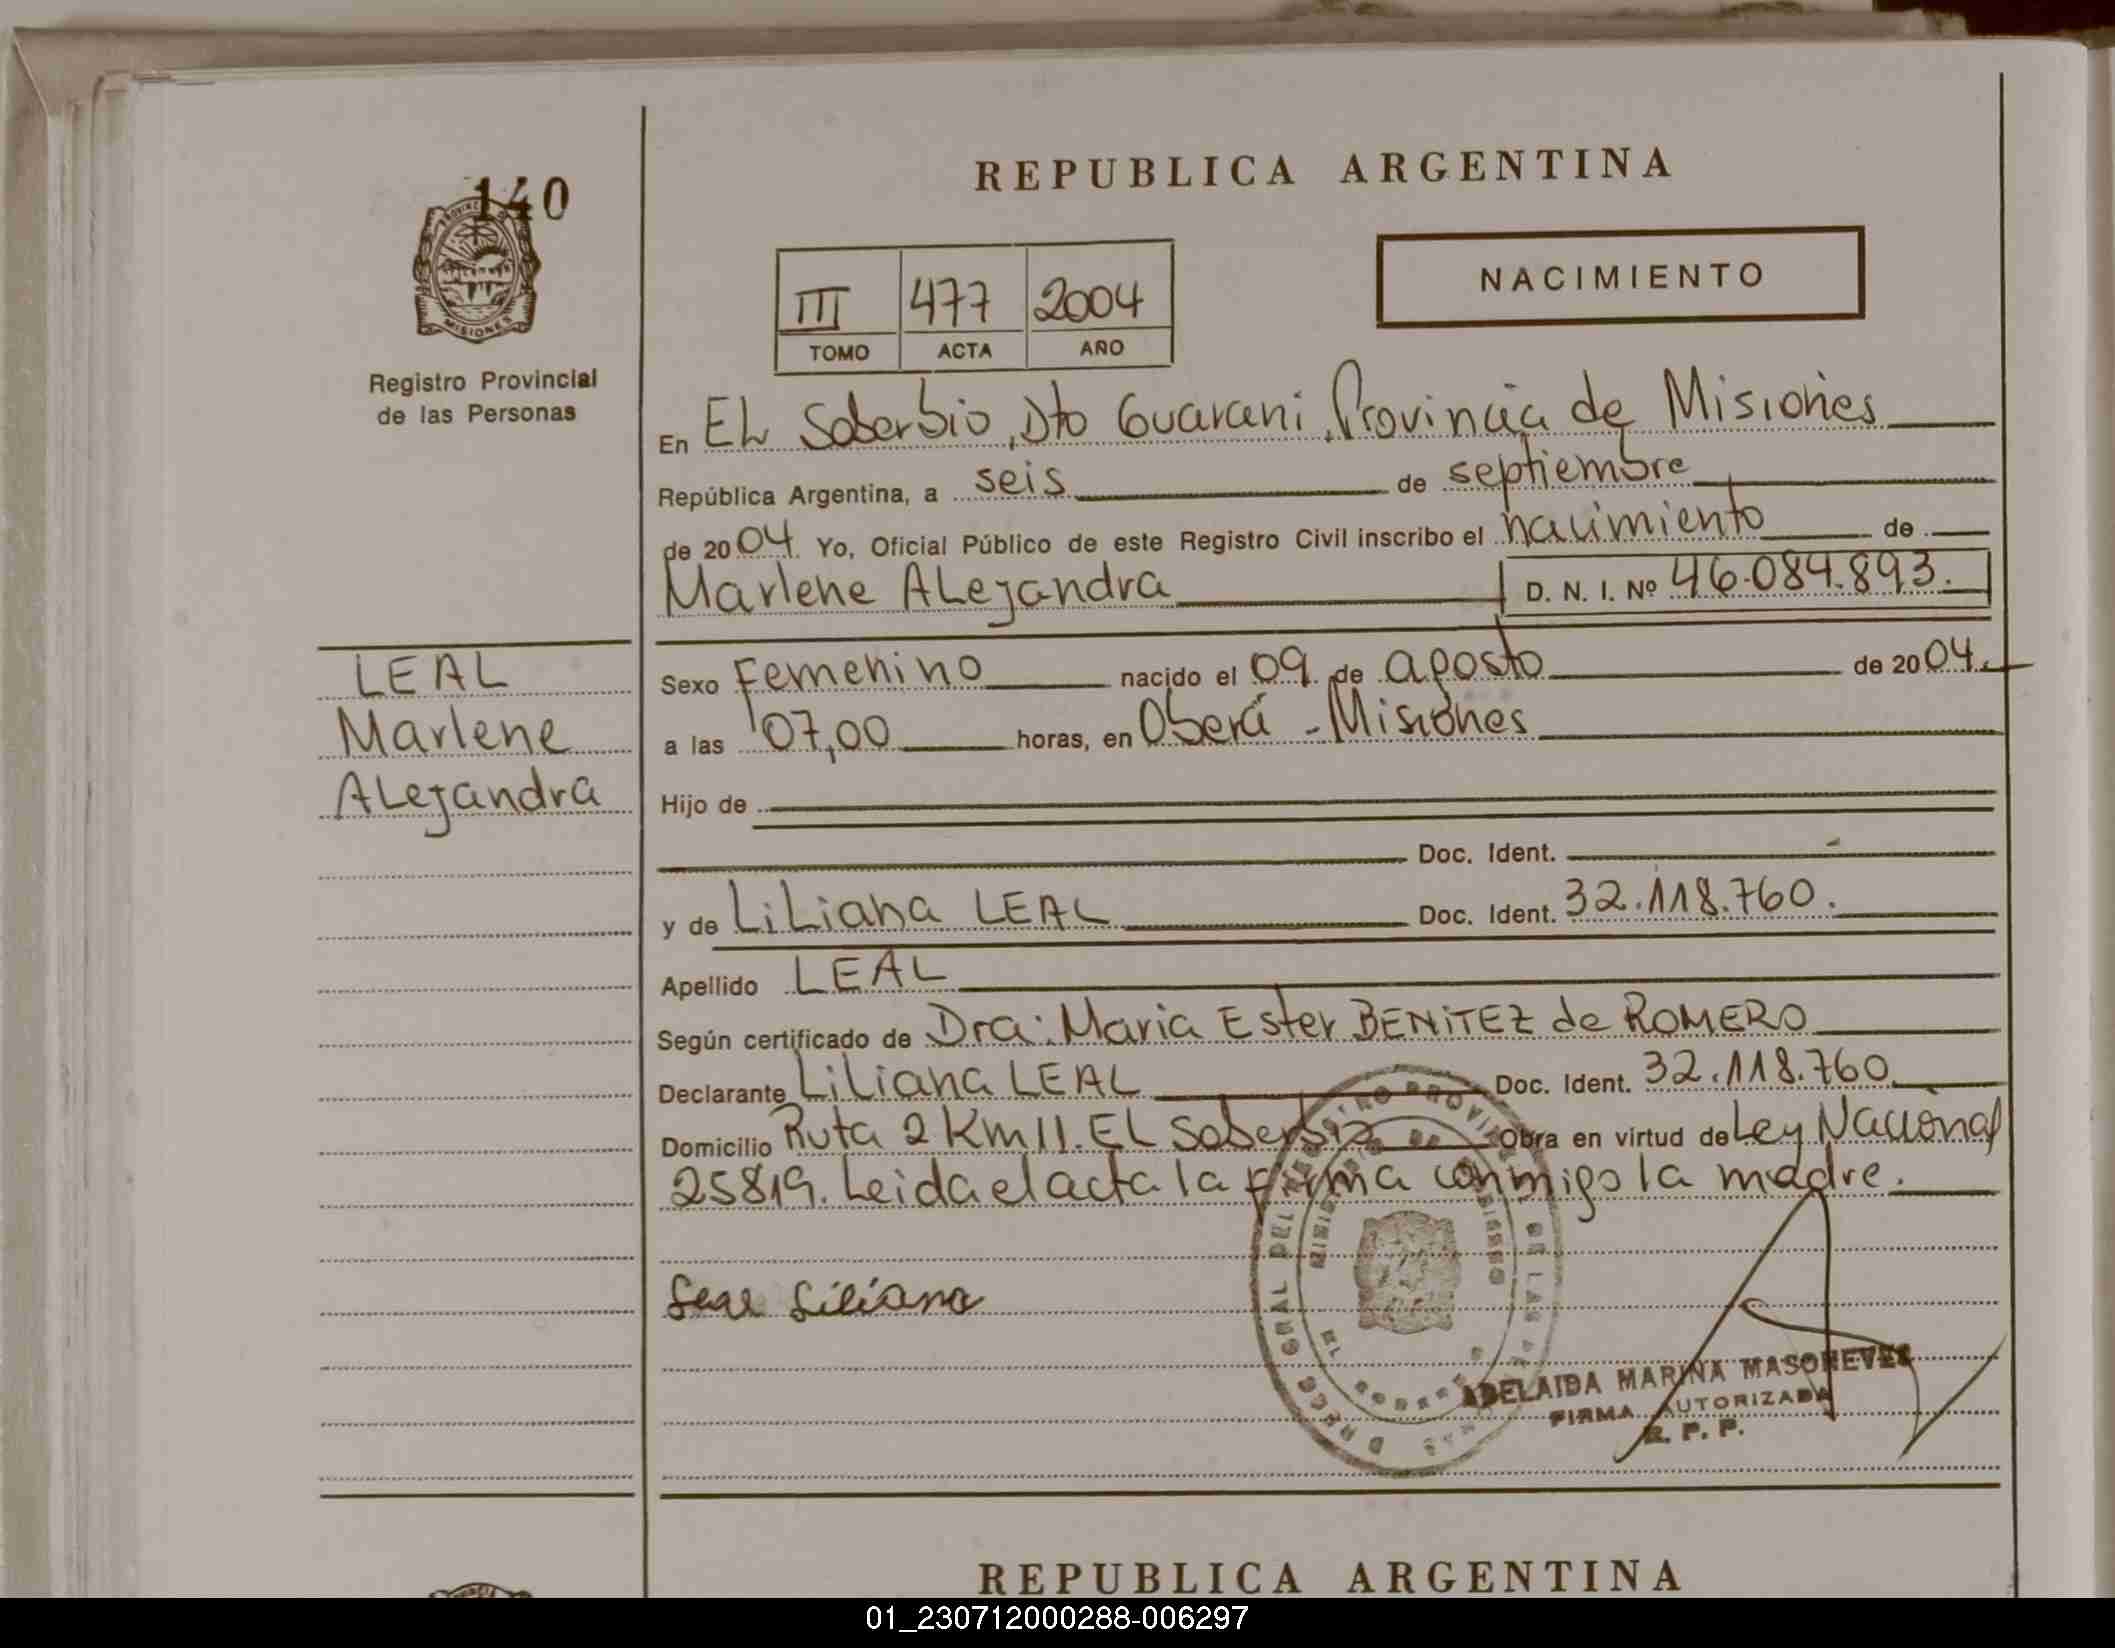 140
PROVINCIA DE
MISIONES
Registro Provincial
de las Personas
REPUBLICA ARGENTINA
III 477 2004
TOMO ACTA AÑO
NACIMIENTO
En EL Soberbio, Dto Guarani, Provincia de Misiones
República Argentina, a seis de septiembre
de 2004. Yo, Oficial Público de este Registro Civil inscribo el nacimiento de
Marlene ALejandra D. N. I. Nº 46.084.893.
LEAL
Marlene
ALejandra
Sexo Femenino nacido el 09 de agosto de 2004.
a las 07,00 horas, en Oberá - Misiones
Hijo de
Doc. Ident.
y de LiLiana LEAL Doc. Ident. 32.118.760.
Apellido LEAL
Según certificado de Dra: Maria Ester BENiTEZ de ROMERO
Declarante LiLiana LEAL Doc. Ident. 32.118.760
Domicilio Ruta 2 Km 11. EL Soberbio Obra en virtud de Ley Nacional
25819. Leida el acta la firma conmigo la madre.
Leal Liliana
ADELAIDA MARINA MASONEVES
FIRMA AUTORIZADA
R. P. P.
REPUBLICA ARGENTINA
01_230712000288-006297